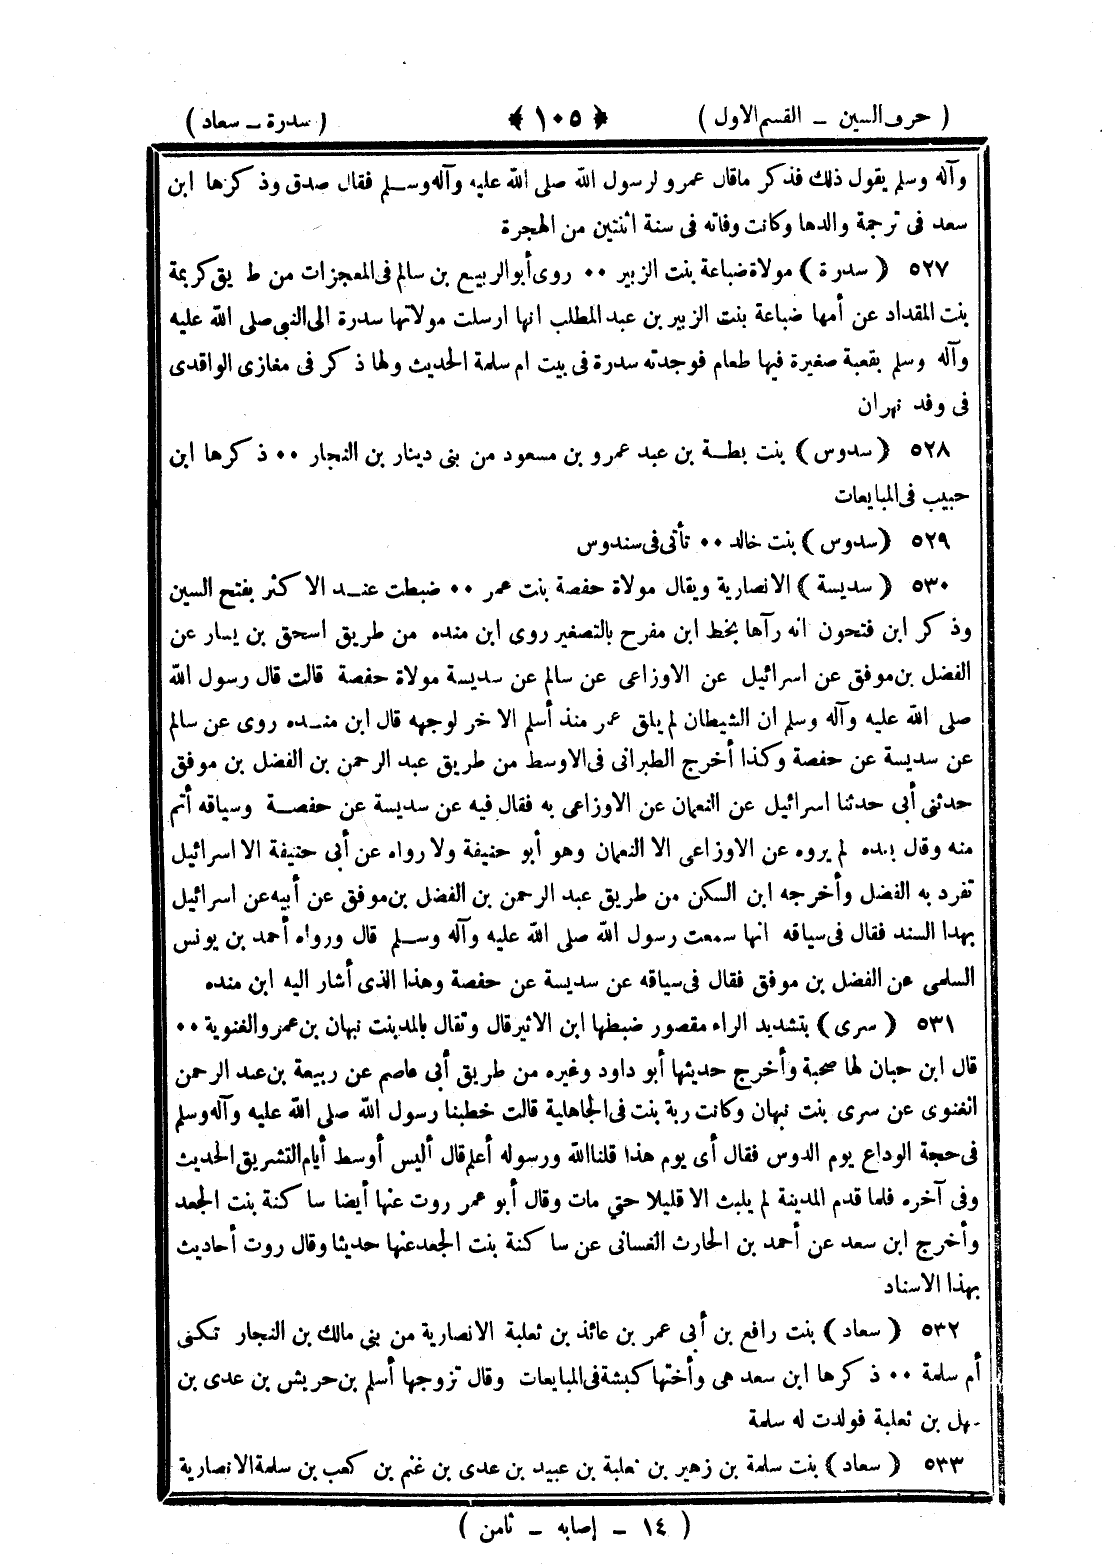 ( حرف السين – القسم الاول ) ﴿ ١٠٥ ﴾ ( سدرة – سعاد )
وآله وسلم يقول ذلك فذكر ماقال عمرو لرسول الله صلى الله عليه وآله وسلم فقال صدق وذكرها ابن
سعد فى ترجمة والدها وكانت وفاته فى سنة اثنتين من الهجرة
٥٢٧ ( سدرة ) مولاة ضباعة بنت الزبير ٠٠ روى أبو الربيع بن سالم فى المعجزات من ط يق كريمة
بنت المقداد عن أمها ضباعة بنت الزبير بن عبد المطلب انها ارسلت مولاتها سدرة الى النبى صلى الله عليه
وآله وسلم بقعبة صغيرة فيها طعام فوجدته سدرة فى بيت ام سلمة الحديث ولها ذكر فى مغازى الواقدى
فى وفد نهران
٥٢٨ ( سدوس ) بنت بطة بن عبد عمرو بن مسعود من بنى دينار بن النجار ٠٠ ذكرها ابن
حبيب فى المبايعات
٥٢٩ ( سدوس ) بنت خالد ٠٠ تأتى فى سندوس
٥٣٠ ( سديسة ) الانصارية ويقال مولاة حفصة بنت عمر ٠٠ ضبطت عند الاكثر بفتح السين
وذكر ابن فتحون انه رآها بخط ابن مفرح بالتصغير روى ابن منده من طريق اسحق بن يسار عن
الفضل بن موفق عن اسرائيل عن الاوزاعى عن سالم عن سديسة مولاة حفصة قالت قال رسول الله
صلى الله عليه وآله وسلم ان الشيطان لم يلق عمر منذ أسلم الاخر لوجهه قال ابن منده روى عن سالم
عن سديسة عن حفصة وكذا أخرج الطبرانى فى الاوسط من طريق عبد الرحمن بن الفضل بن موفق
حدثنى أبى حدثنا اسرائيل عن النعمان عن الاوزاعى به فقال فيه عن سديسة عن حفصة وسياقه أتم
منه وقال بعده لم يروه عن الاوزاعى الا النعمان وهو أبو حنيفة ولا رواه عن أبى حنيفة الا اسرائيل
تفرد به الفضل وأخرجه ابن السكن من طريق عبد الرحمن بن الفضل بن موفق عن أبيه عن اسرائيل
بهذا السند فقال فى سياقه انها سمعت رسول الله صلى الله عليه وآله وسلم قال ورواه أحمد بن يونس
السلمى عن الفضل بن موفق فقال فى سياقه عن سديسة عن حفصة وهذا الذى أشار اليه ابن منده
٥٣١ ( سرى ) بتشديد الراء مقصور ضبطها ابن الاثير قال وتقال بالمد بنت نبهان بن عمرو الغنوية ٠٠
قال ابن حبان لها صحبة وأخرج حديثها أبو داود وغيره من طريق أبى عاصم عن ربيعة بن عبد الرحمن
الغنوى عن سرى بنت نبهان وكانت ربة بنت فى الجاهلية قالت خطبنا رسول الله صلى الله عليه وآله وسلم
فى حجة الوداع يوم الدوس فقال أى يوم هذا قلنا الله ورسوله أعلم قال أليس أوسط أيام التشريق الحديث
وفى آخره فلما قدم المدينة لم يلبث الا قليلا حتي مات وقال أبو عمر روت عنها أيضا ساكنة بنت الجعد
وأخرج ابن سعد عن أحمد بن الحارث الغسانى عن ساكنة بنت الجعد عنها حديثا وقال روت أحاديث
بهذا الاسناد
٥٣٢ ( سعاد ) بنت رافع بن أبى عمر بن عائذ بن ثعلبة الانصارية من بني مالك بن النجار تكنى
أم سلمة ٠٠ ذكرها ابن سعد هى وأختها كبشة فى المبايعات وقال تزوجها أسلم بن حريش بن عدى بن
ـهل بن ثعلبة فولدت له سلمة
٥٣٣ ( سعاد ) بنت سلمة بن زهير بن ثعلبة بن عبيد بن عدى بن غنم بن كعب بن سلمة الانصارية
( ١٤ – إصابه – ثامن )